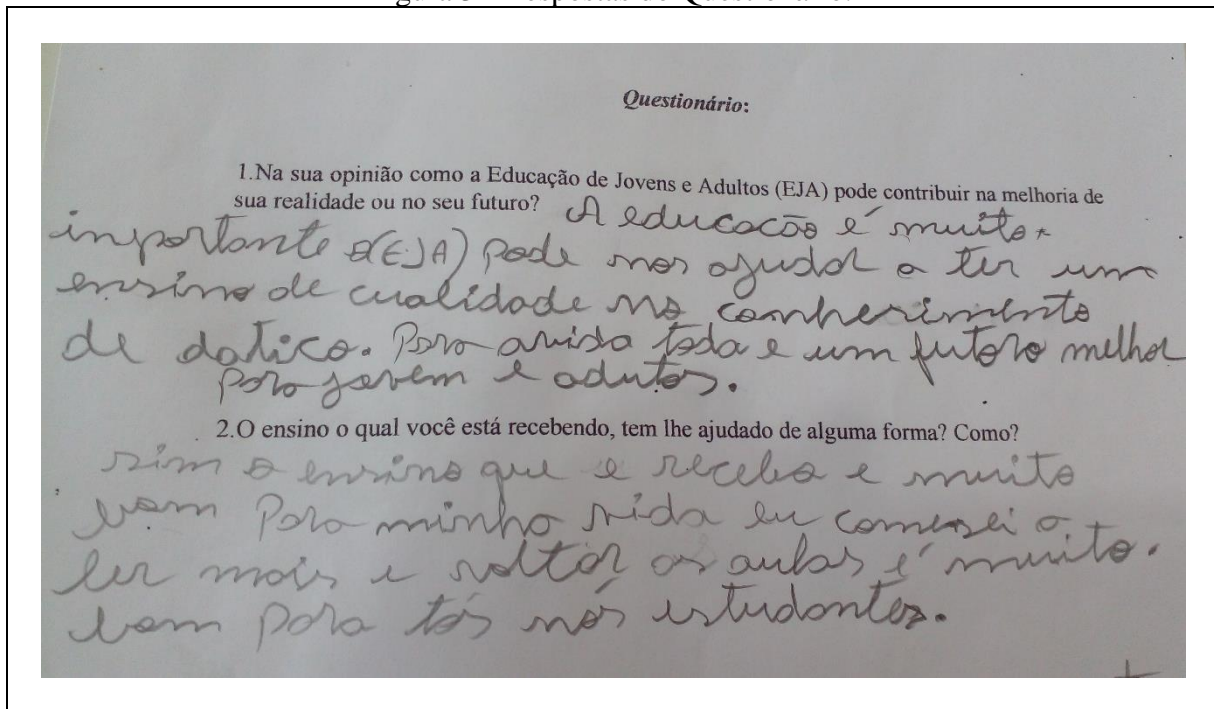 Questionário:
1.Na sua opinião como a Educação de Jovens e Adultos (EJA) pode contribuir na melhoria de
sua realidade ou no seu futuro? A educacão é muito
importante a(EJA) pode nos ajudar a ter um
ensino de cualidade no conherimento
de datico. Para avida toda e um futoro melhor
para jovem e adutos.
2.O ensino o qual você está recebendo, tem lhe ajudado de alguma forma? Como?
sim o ensino que e recebo e muito
bom Para minha vida eu comensei a
ler mais e voltar as aulas é muito.
bom para tós nós estudantes.